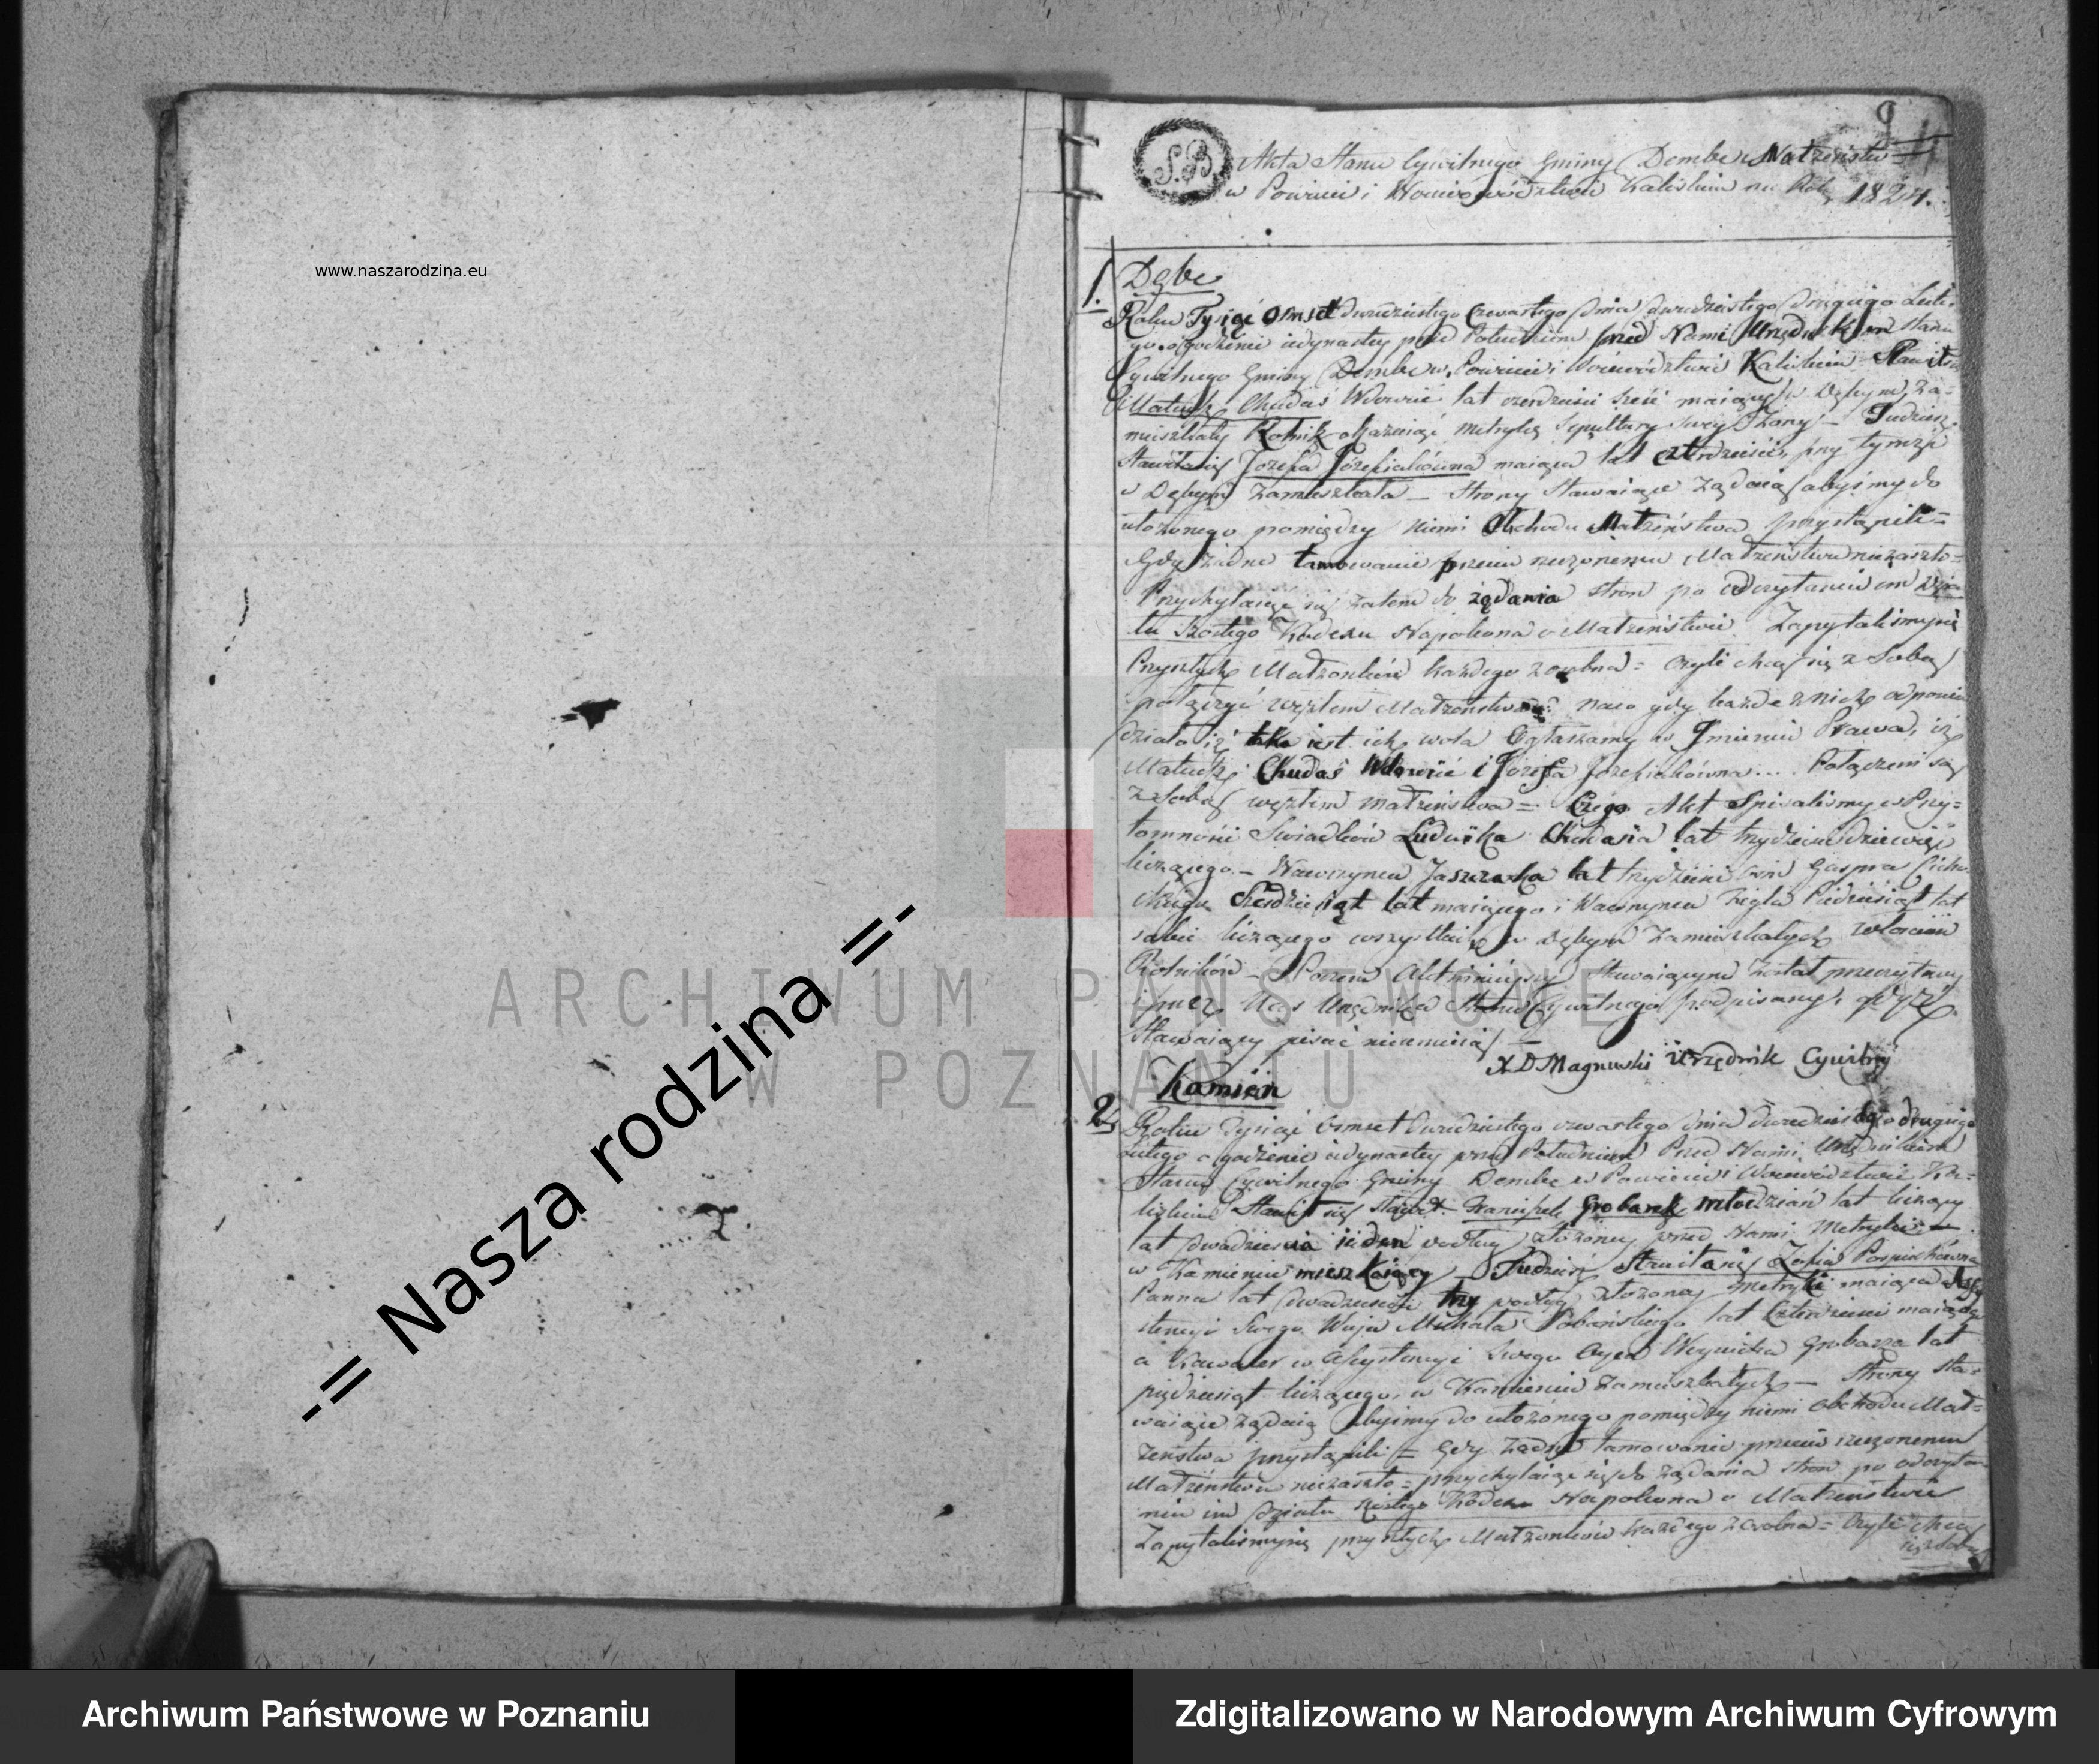 www.naszarodzina.eu
-= Nasza rodzina =-
ARCHIWUM PAŃSTWOWE
W POZNANIU
9
S.B
Akta Stanu Cywilnego Gminy Dembe Małżeństw
w Powiecie i Woiewodztwie Kaliskim na Rok 1824.
1. Dębe
Roku Tysiąc Osmset dwudziestego Czwartego Dnia dwudziestego Drugiego Lute-
go o godzinie iedynastey przed Południem przed Nami Urzędnikiem Stanu
Cywilnego Gminy Dembe w Powiecie i Woiewodztwie Kaliskim Stawił się
Mateusz Chudaś Wdowiec lat czterdzieści sześć maiący w Dębym Za-
mieszkały Rolnik okazuiąc metrykę Sepultury swey Żony – Tudzież
Stawiła się Jozefa Józefiakówna maiąca lat czterdzieści, przy tymże
w Dębym Zamieszkała – Strony Stawaiące Żądaią abyśmy do
ułożonego pomiędzy niemi Obchodu Małżeństwa przystąpili =
Gdy żadne tamowanie przeciw rzeczonemu Małżeństwu niezaszło =
Przychylaiąc się zatem do żądania stron po odczytaniu im Dzia-
łu Szóstego Kodexu Napoleona o Małżeństwie Zapytaliśmy się
Przyszłych Małżonków każdego zosobna = czyli chcą się z Sobą
połączyć węzłem Małżeństwa? na co gdy każde z nich odpowie-
działo iż taka iest ich wola Ogłaszamy w Imieniu Prawa, iż
Mateusz Chudaś Wdowiec i Jozefa Jozefiakówna.... Połączeni są
z Sobą węzłem małżeństwa = Czego Akt Spisaliśmy w Przy=
tomności Swiadków Ludwika Chudasia lat trzydzieści dziewięć
liczącego – Wawrzynca Jaszczaka lat trzydzieści Gaspra
lat maiącego i Wawrzynca lat
sobie liczącego wszystkich w Dębym Zamieszkałych
Rolników – Poczem Akt ninieyszy Stawaiącym został przeczytany
i przez Nas Urzędnika Stanu Cywilnego podpisany, gdyż
Stawaiący pisać nieumieią –
X D Magnuski Urzędnik Cywilny
2. Kamień
Roku Tysiąc Osmset Dwudziestego czwartego Dnia Dwudziestego drugiego
Lutego o godzinie iedynastey przed Południem Przed Nami Urzędnikiem
Stanu Cywilnego Gminy Dembe w Powiecie i Woiewodztwie Ka-
liskim Stawił się Franciszek Grobarek młodzian lat liczący
lat dwadzieścia ieden według złożoney przed Nami Metryki –
w Kamieniu mieszkaiący – Tudzież Stawiła się Zofia Pospiechówna
Panna lat dwadzieścia trzy podług złożoney Metryki maiąca Asy-
stencyi Swego Wuja Michała lat Czterdzieści maiącego
a Kawaler w Asystencyi Swego Oyca Woyciecha Grobarza lat
pięćdziesiąt liczącego, w Kamieniu Zamieszkałych – Strony Sta-
waiące żądaią abyśmy do ułożonego pomiędzy niemi obchodu Mał=
żeństwa przystąpili = Gdy żadne tamowanie przeciw rzeczonemu
Małżeństwu niezaszło = przychylaiąc się do żądania stron po odczyta-
niu im Działu Szóstego Kodexu Napoleona o Małżeństwie
Zapytaliśmy się przyszłych Małżonków każdego zosobna = Czyli chcą
się z Sobą
Archiwum Państwowe w Poznaniu
Zdigitalizowano w Narodowym Archiwum Cyfrowym